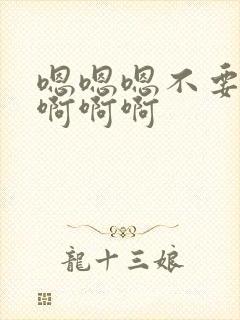 嗯嗯嗯不要
啊啊啊
龍十三娘